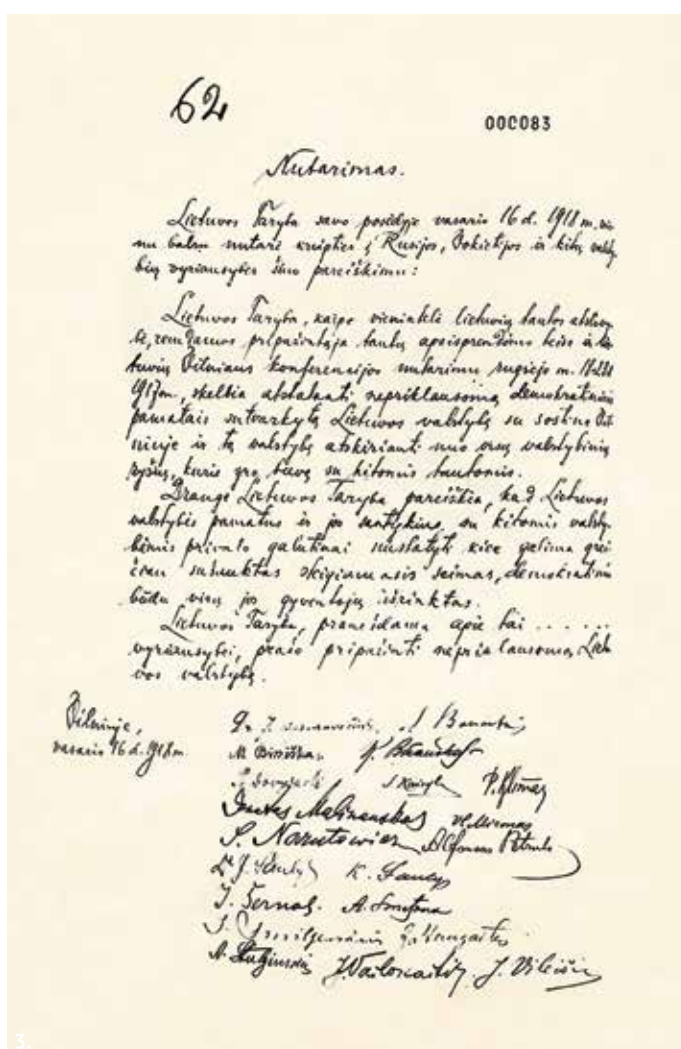 62
000083
Nutarimas.
Lietuvos Taryba savo posėdyje vasario 16 d. 1918 m. vie
nu balsu nutarė kreiptis į Rusijos, Vokietijos ir kitų valsty
bių vyriausybes šiuo pareiškimu:
Lietuvos Taryba, kaipo vienintelė lietuvių tautos atstovy
bė, remdamos pripažintąja tautų apsisprendimo teise ir lie
tuvių Vilniaus konferencijos nutarimu rugsėjo m. 18-23 d.
1917 m., skelbia atstatanti nepriklausomą demokratiniais
pamatais sutvarkytą Lietuvos valstybę su sostine Vil
niuje ir tą valstybę atskirianti nuo visų valstybinių
ryšių, kurie yra buvę su kitomis tautomis.
Drauge Lietuvos Taryba pareiškia, kad Lietuvos
valstybės pamatus ir jos santykius su kitomis valsty
bėmis privalo galutinai nustatyti kiek galima grei
čiau sušauktas steigiamasis seimas, demokratiniu
būdu visų jos gyventojų išrinktas.
Lietuvos Taryba, pranešdama apie tai . . . . . .
vyriausybei, prašo pripažinti nepriklausomą Lietu
vos valstybę.
Vilniuje,
vasario 16 d. 1918 m.
Dr. J. Basanavičius S. Banaitis
M. Biržiška K. Bizauskas
J. Kairys P. Klimas
Donatas Malinauskas Vl. Mironas
S. Narutowicz Alfonsas Petrulis
Dr. J. Šaulys K. Šaulys
J. Šernas A. Smetona
J. Smilgevičius
A. Stulginskis J. Vailokaitis J. Vileišis
3.